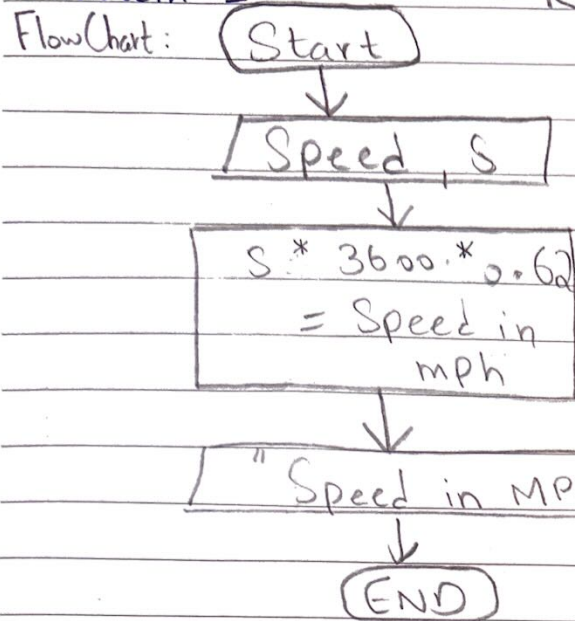 FlowChart:
Start
Speed, S
S * 3600 * 0.62
= Speed in
mph
" Speed in MP
END